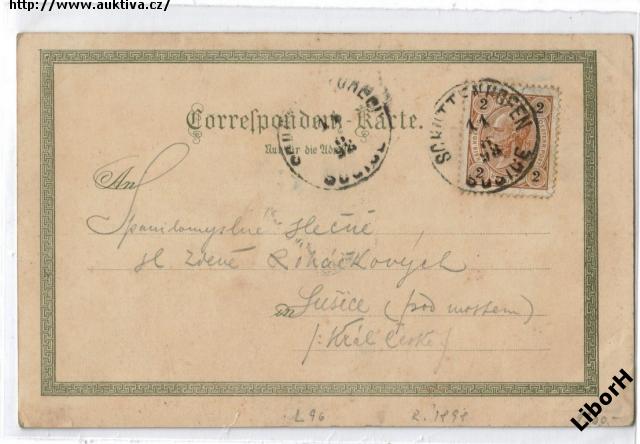 http://www.auktiva.cz/
Correspondenz-Karte.
Nur für die Adresse
SCHÜTTENHOFEN
SUŠICE
SUŠICE
2 2
2 2
An
Spanilomyslné slečně
sl. Zdeně Řiháčkových
in Sušice (pod mostem)
/: Král. České :/
L 96
R. 1898
LiborH